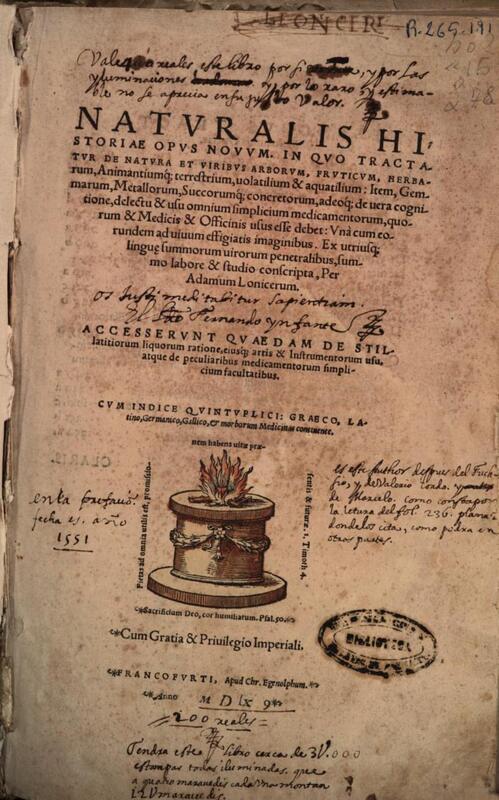 LEONCERI
R.265.191
Vale reales este libro por si y por las
yluminaciones y por lo raro y estima-
ble no se aprecia en su justo Valor.
NATVRALIS HI-
STORIAE OPVS NOVVM. IN QVO TRACTA-
TVR DE NATVRA ET VIRIBVS ARBORVM, FRVTICVM, HERBA-
rum, Animantiumq́; terrestrium, uolatilium & aquatilium: Item, Gem-
marum, Metallorum, Succorumq́; concretorum, adeoq́; de uera cogni-
tione, delectu & usu omnium simplicium medicamentorum, quo-
rum & Medicis & Officinis usus esse debet: Vnà cum eo-
rundem ad uiuum effigiatis imaginibus. Ex utriusq́;
linguę summorum uirorum penetralibus, sum-
mo labore & studio conscripta, Per
Adamum Lonicerum.
os Justi meditabitur sapientiam.
Fernando ynfante
ACCESSERVNT QVAEDAM DE STIL-
latitiorum liquorum ratione, eiusq́; artis & Instrumentorum usu,
atque de peculiaribus medicamentorum simpli-
cium facultatibus.
CVM INDICE QVINTVPLICI: GRAECO, LA-
tino, Germanico, Gallico, & morborum Medicinas continente.
Pietas ad omnia utilis est, promissio-
nem habens uitæ præ-
sentis & futuræ. 1. Timoth 4.
en la prefacio.
fecha es. año
1551
es este author despues del Fuch-
sio, y de Valerio Cordo, y
de Mat como consta por
la letura del fol. 236. plana
dondelos cita, como podra en
otras partes.
Sacrificium Deo, cor humiliatum. Psal. 50.
Cum Gratia & Priuilegio Imperiali.
BIBLIOTECA
FRANCOFVRTI, Apud Chr. Egenolphum.
Anno MDlx 9
=200 reales=
Tendra este libro cerca de 3U000
estampas todas iluminadas, que
a quatro maravedis cada Una montan
12U maravedis.